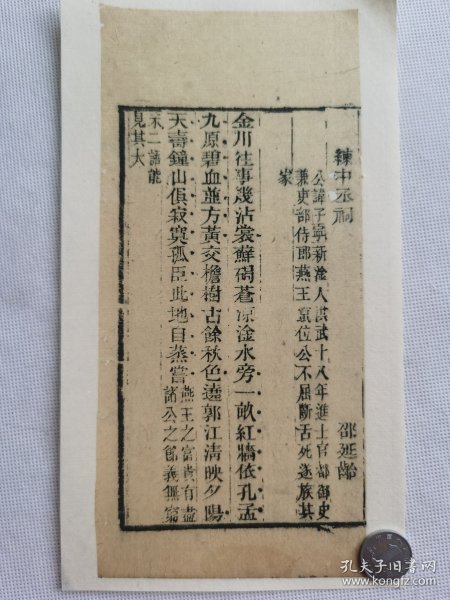 練中丞祠 邵延齡
公諱子寧新淦人洪武十八年進士官都御史
兼吏部侍郎燕王篡位公不屈斷舌死遂族其
家
金川往事幾沾裳蘚碣蒼涼淦水旁一畝紅牆依孔孟
九原碧血並方黃交檐樹古餘秋色遶郭江清映夕陽
天壽鐘山俱寂寞孤臣此地自蒸嘗
燕王之富貴有盡
諸公之節義無窮
末二語能
見其大
孔夫子旧书网
www.kongfz.com